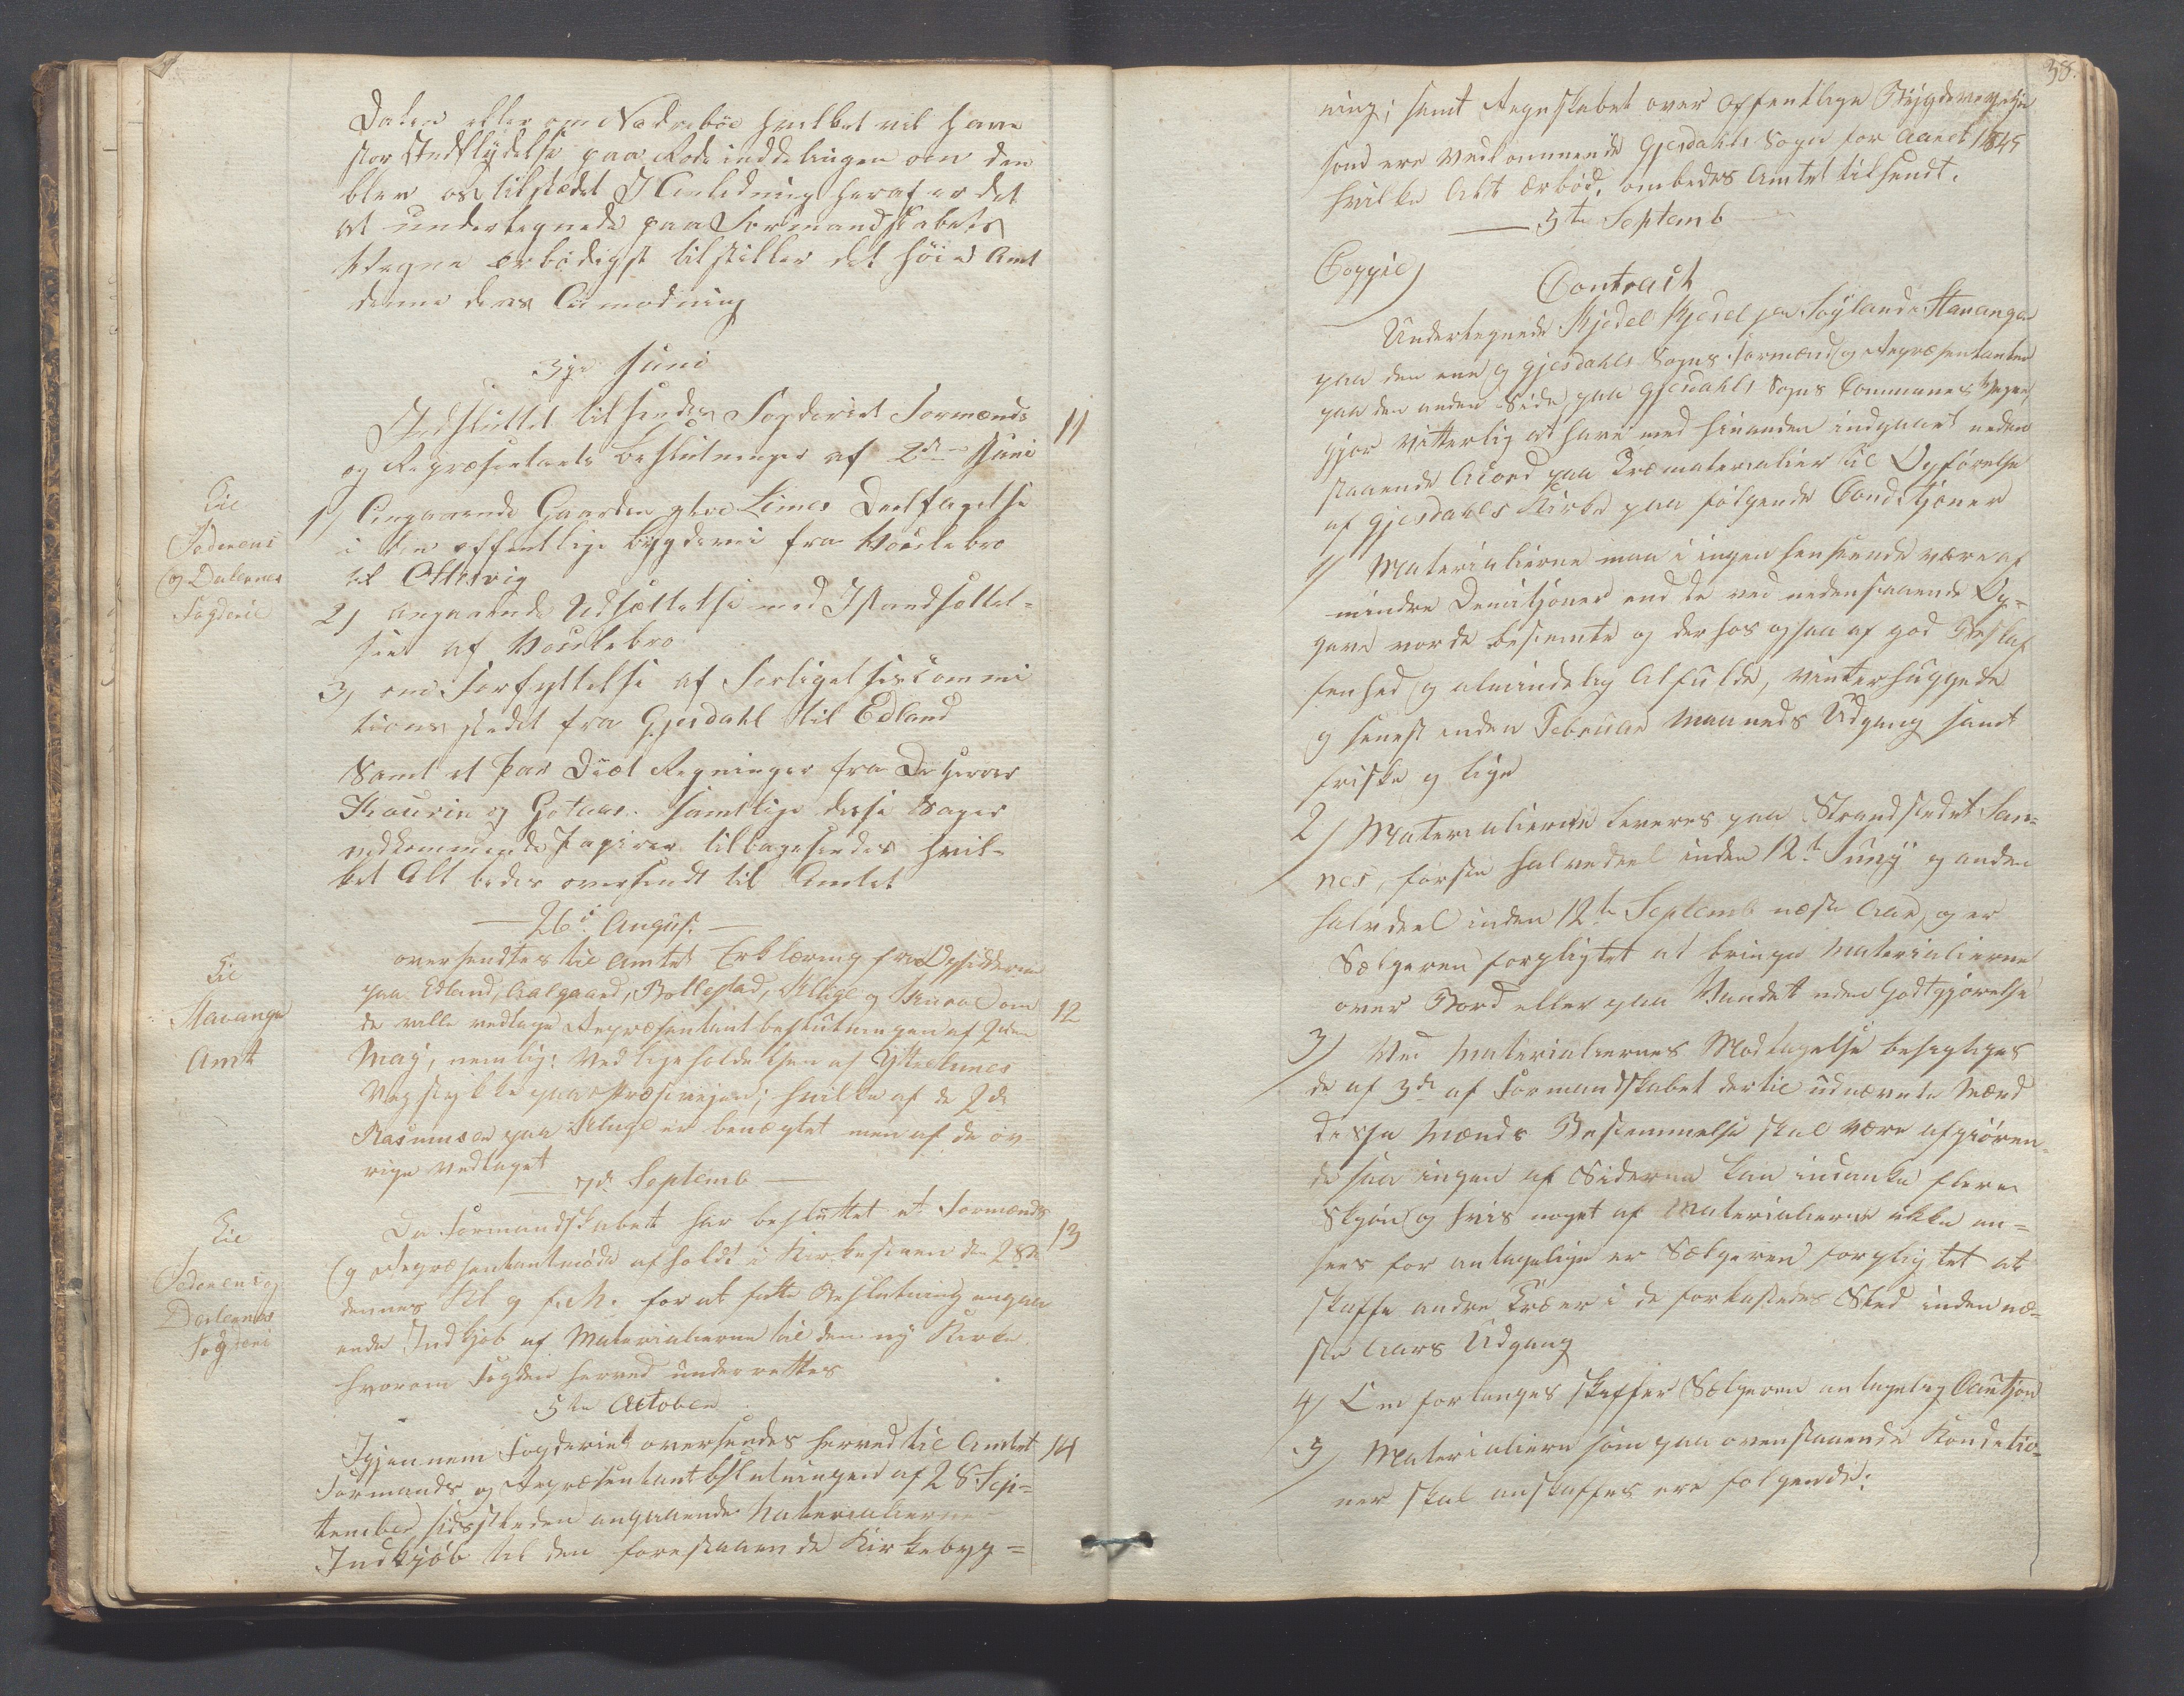 Dalen eller om Nedrebøe hvilket vil have
stor Indflydelse paa Rodeinddelingen om den
blev os tilstædet I Anledning heraf er det
at undertegnede paa Formandskabets
Vegne ærbødigst tilstiller det høie Amt
denne deres Anmodning
3die Juni
Til
Jederens
og Dalernes
Fogderie
Indsluttet tilsendes Fogderiet Formænds 11
og Repræsentants Beslutninger af 2den Juni
1) Angaaende Gaarden Limes Deeltagelse
i den offentlige bygdevei fra
til Oltesvig
2) angaaende Udsættelse med Istandsettel-
sen af
3) om Forflyttelse af Forligelsescommi
tionsstedet fra Gjesdahl til Edland
Samt et par Diæt Regninger fra De Herrer
Kaurin og Gotaas. samtlige disse Sager
vedkommende Papirer tilbagesendes hvil-
ket Alt bedes oversendt til Amtet
— 26de Augus. —
Til
Stavanger
Amt
oversendtes til Amtet Erklæring fra Opsidderne
paa Edland, Aalgaard, Bollestad, Kluge og om
de ville vedtage Repræsentantbeslutningen af 2den 12
May, nemlig: Vedligeholdelsen af Ytrelimes
Vegstykke paa; hvilke af de 2de
Rasmuser paa Kluge er benægtet men af de øv-
rige vedtaget
— 7de Septemb —
Til
Jederens og
Dalernes
Fogderi
Da Formandskabet har besluttet et Formænds 13
og Repræsentantmøde afholdt i Kirkestuen den 28de
dennes Kl 9 f.m. for at fatte Beslutning angaa
ende Indkjøb af Materialierne til den ny Kirke
hvorom Fogden herved underrettes
5te October
Igjennem Fogderiet oversendes herved til Amtet 14
Formands og Repræsentantbslutningen af 28 Sep-
tember sidstleden angaaende Materialierne
Indkjøb til den forestaaende Kirkebyg-
38.
ning; samt Regnskabet over Offentlige Bygdeveye
som ere Vedkommende Gjesdahls Sogn for Aaret 1845
hvilke Alt ærbød. ombedes Amtet tilsendt.
— 5te Septemb —
Coppie)
Contract
Undertegnede Kjedel Kjedel paa Høyland Stavanger
paa den ene og Gjesdahls Sogns Formænd og Repræsentanter
paa den anden Side paa Gjesdahls Sogns Communes Vegne,
gjør Vitterlig at have med hinanden indgaaet neden
staaende Acord paa Træmaterialier til Opførelse
af Gjesdahls Kirke paa følgende Condetjoner
1) Materialierne maa i ingen henseende være af
mindre Demitjoner end de ved nedenstaaende Op-
gave vorde bestemte og derhos ogsaa af god Beskaf
fenhed og almindelig Alfulde, vinterhuggede
og senest inden Februar Maaneds Udgang samt
friske og lige
2) Materialierne leveres paa Strandstedet San-
nes, første halvedeel inden 12te Juny og anden
halvdeel inden 12te Septemb næste Aar, og er
Sælgeren forpligtet at bringe Materialierne
over Bord eller paa Vandet uden Godtgjørelse
3) Ved Materialiernes Modtagelse besigtiges
de af 3de af Formandskabet dertil udnævnte Mænd
disse Mænds Bestemmelse skal være afgjøren-
de saa ingen af Siderne kan indanke flere
Skjøn og hvis noget af Materialierne ikke an-
sees for antagelige er Sælgeren forpligtet at
skaffe andre Træer i de forkastedes Sted inden næ-
ste Aars Udgang
4) Om forlanges skaffer Sælgeren antagelig Cautjon
5) Materialiern som paa ovenstaaende Kondetio-
ner skal anskaffes ere følgende: